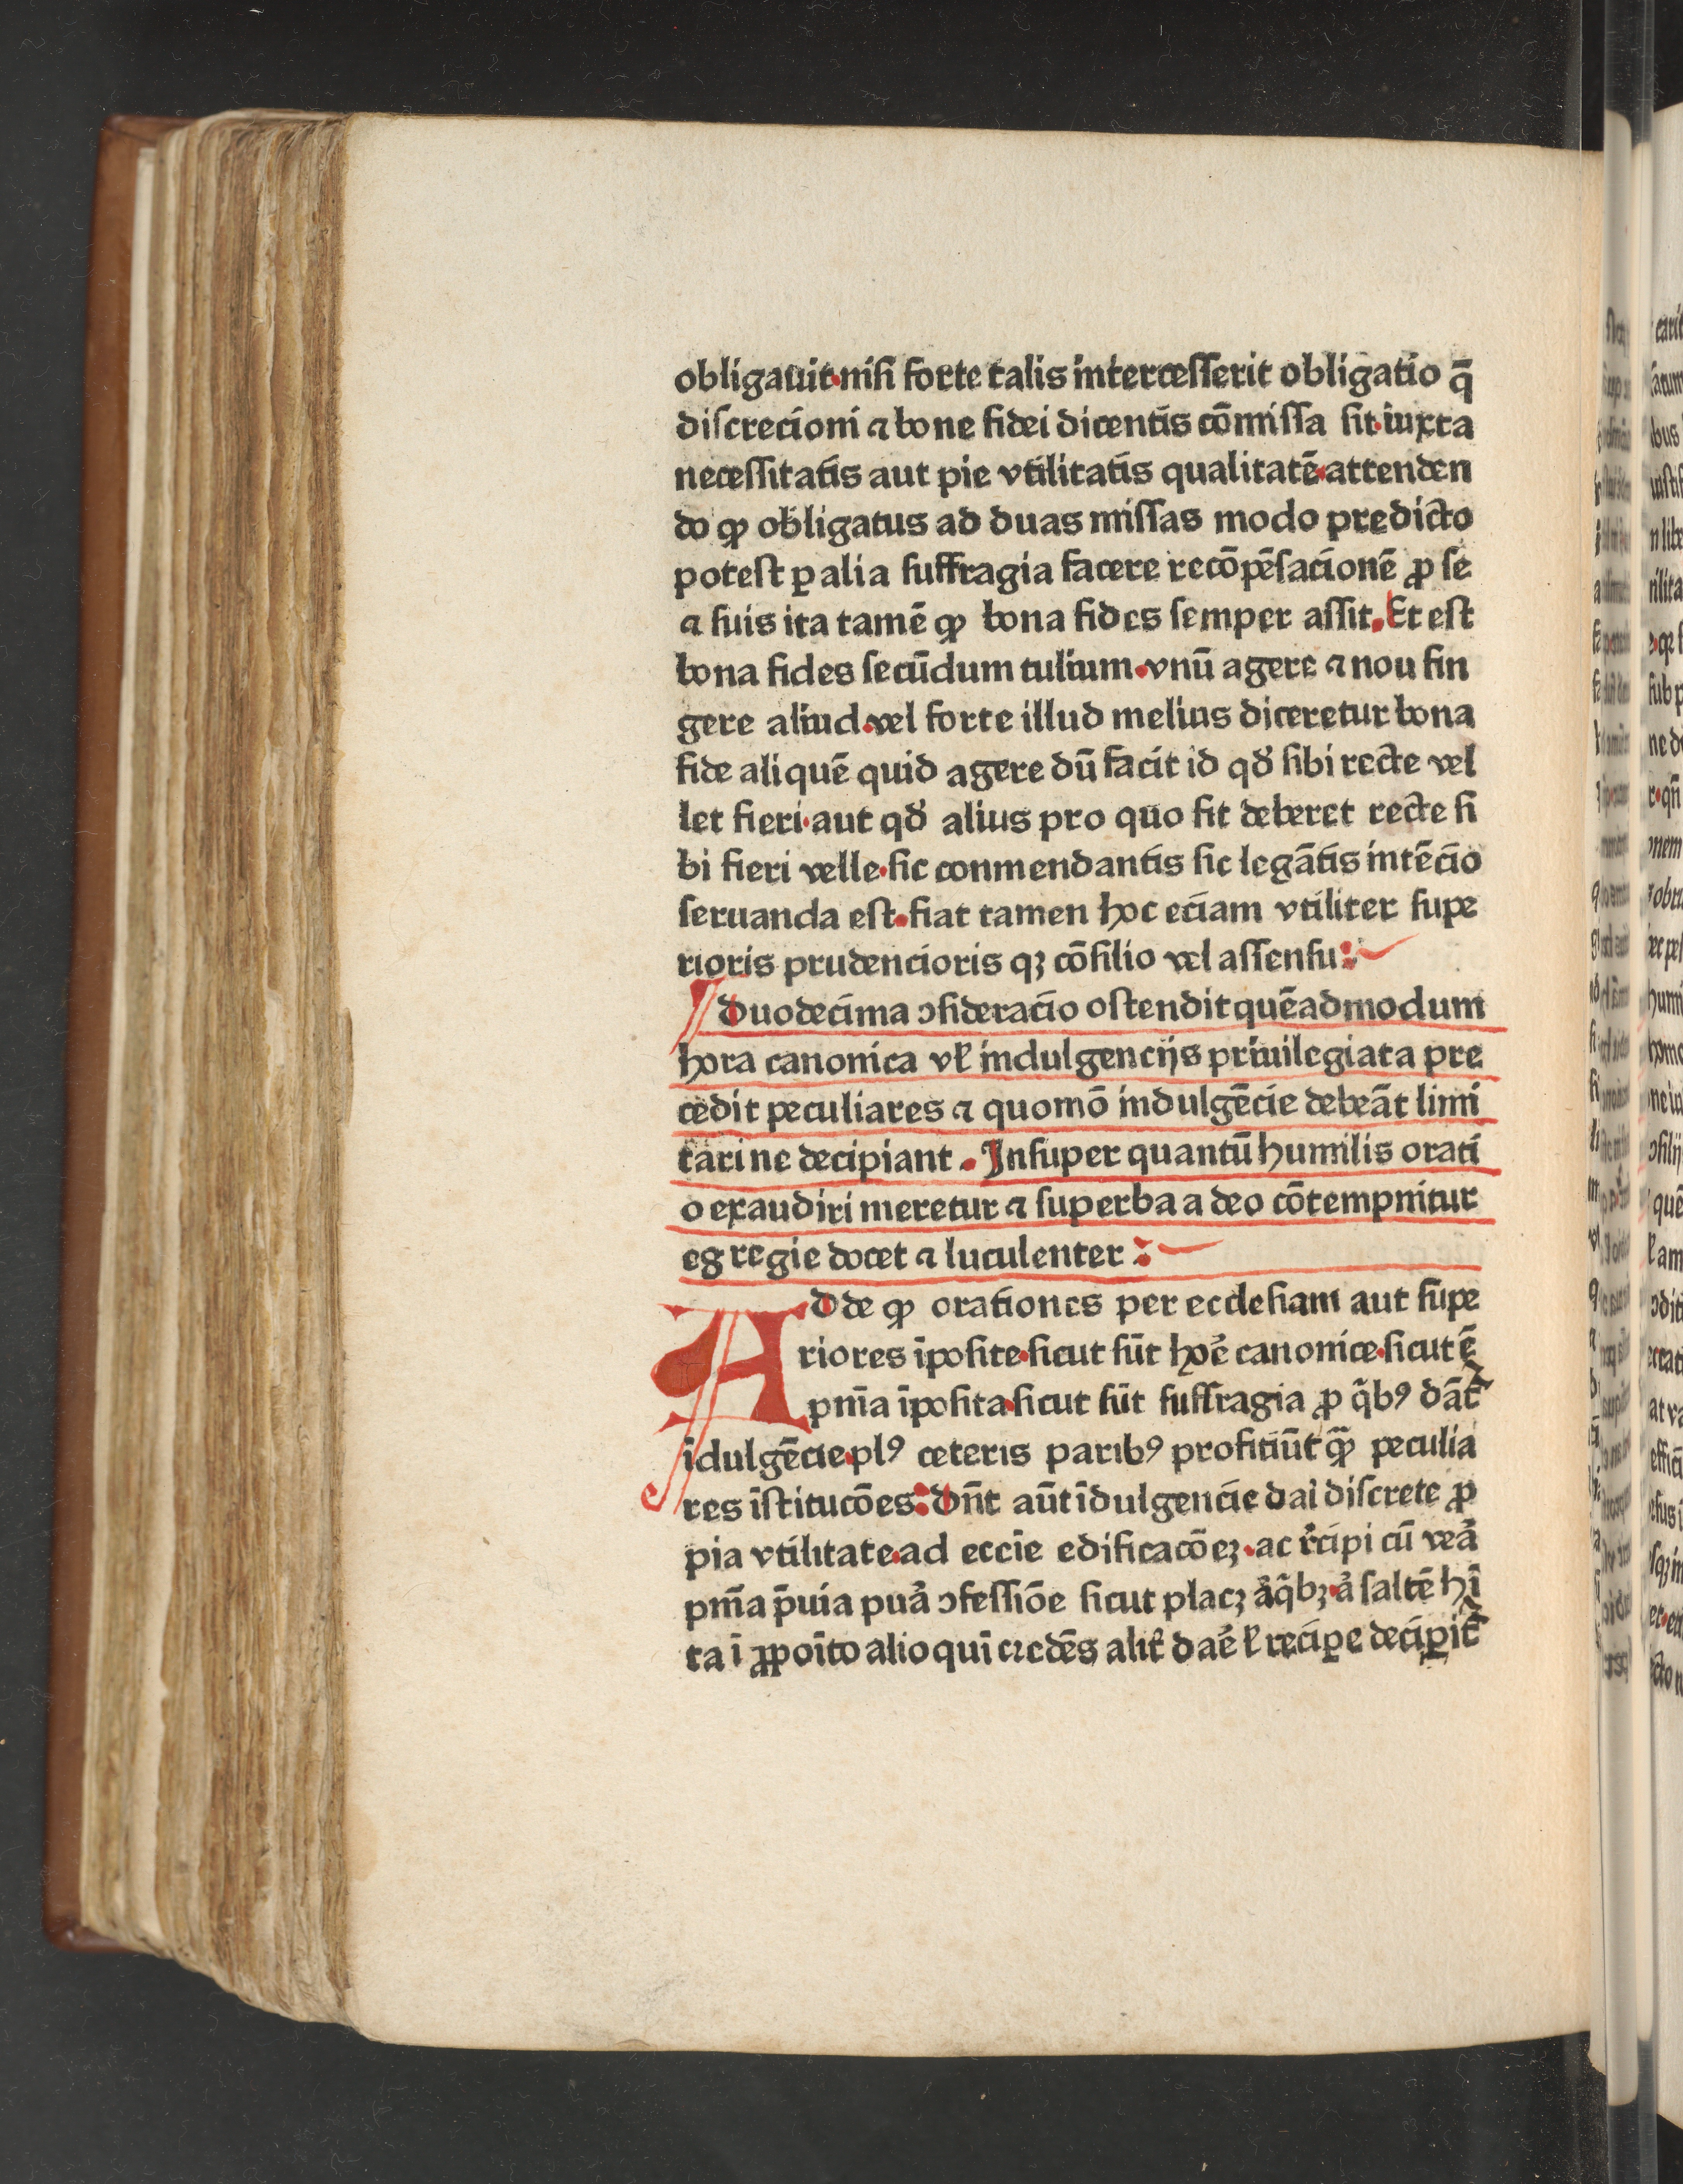 obligauit·niſi forte talis interceſſerit obligatio q̄
diſcrecioni ⁊ bone fidei dicentis cōmiſſa ſit·iuxta
neceſſitatis aut pie vtilitatis qualitatē·attenden
do ꝙ obligatus ad duas miſſas modo predicto
poteſt ꝑ alia ſuffragia facere recōpēſacionē ꝓ ſe
⁊ ſuis ita tamē ꝙ bona fides ſemper aſſit. Et eſt
bona fides ſecūdum tulium·vnū agere ⁊ nou fin
gere aliud·vel forte illud melius diceretur bona
fide aliquē quid agere dū facit id qđ ſibi recte vel
let fieri·aut qđ alius pro quo fit deberet recte ſi
bi fieri velle·ſic conmendantis ſic legātis intēcio
ſeruanda eſt·fiat tamen hoc eciam vtiliter ſupe
rioris prudencioris qꝫ cōſilio vel aſſenſu:
duodecima ↄſideracio oſtendit quēadmodum
hora canonica vꝉ indulgencijs priuilegiata pre
cedit peculiares ⁊ quomō indulgēcie debeāt limi
tari ne decipiant. Inſuper quantū humilis orati
o exaudiri meretur ⁊ ſuperba a deo cōtempnitur
egregie docet ⁊ luculenter:
Adde ꝙ orationes per eccleſiam aut ſupe
riores īpoſite·ſicut ſūt hoꝛ̄e canonice·ſicut ē
pnīa īpoſita·ſicut ſūt ſuffragia ꝓ q̄bꝰ dāt᷑
īdulgēcie·plꝰ ceteris paribꝰ proficiūt qꝫ̄ peculia
res īſtitucōes: Dn̄t aūt īdulgencie dai diſcrete ꝓ
pia vtilitate·ad ecc̄ie edificacōeꝫ·ac r̄cipi cū vea᷑
pnīa p̄uia pua᷑ ↄfeſſiōe ſicut placꝫ a᷑q̄bꝫ·a᷑ ſaltē hī
ta ī ꝓpoīto alioqui credēs alit᷑ dae᷑ ꝉ reciꝑe deciꝑit᷑